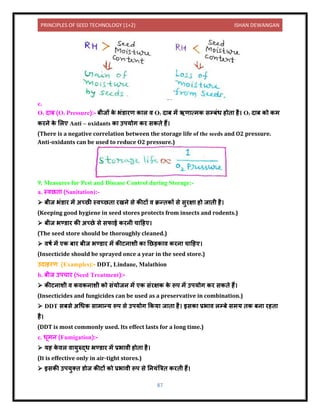 PRINCIPLES OF SEED TECHNOLOGY (1+2) ISHAN DEWANGAN
RH > Seed Moisture Content
Grain of moisture by seeds
RH > Seed Moisture Content
Loss of moisture from seeds
e.
O₂ दाब (O₂ Pressure):- बीजों के भंडारण काल व O₂ दाब में ऋणात्मक सम्बंध होता है। O₂ दाब को कम
करने के लिए Anti – oxidants का उपयोग कर सकते हैं।
(There is a negative correlation between the storage life of the seeds and O2 pressure.
Anti-oxidants can be used to reduce O2 pressure.)
Storage life ∝ 1/O₂ Pressure
9. Measures for Pest and Disease Control during Storage:-
a. स्वच्छता (Sanitation):-
➢ बीज भंडार में अच्छी स्वच्छता रखने से कीटों व कृन्तकों से सुरक्षा हो जाती है।
(Keeping good hygiene in seed stores protects from insects and rodents.)
➢ बीज भण्डार की अच्छे से सफाई करनी चाहिए।
(The seed store should be thoroughly cleaned.)
➢ वर्ष में एक बार बीज भण्डार में कीटनाशी का छिड़काव करना चाहिए।
(Insecticide should be sprayed once a year in the seed store.)
उदाहरण (Examples):- DDT, Lindane, Malathion
b. बीज उपचार (Seed Treatment):-
➢ कीटनाशी व कवकनाशी को संयोजन में एक संरक्षक के रुप में उपयोग कर सकते हैं।
(Insecticides and fungicides can be used as a preservative in combination.)
➢ DDT सबसे अधिक सामान्य रुप से उपयोग किया जाता है। इसका प्रभाव लम्बे समय तक बना रहता
है।
(DDT is most commonly used. Its effect lasts for a long time.)
c. धूमन (Fumigation):-
➢ यह केवल वायुरुद्ध भण्डार में प्रभावी होता है।
(It is effective only in air-tight stores.)
➢ इसकी उपयुक्त डोज कीटों को प्रभावी रुप से नियंत्रित करती हैं।
87